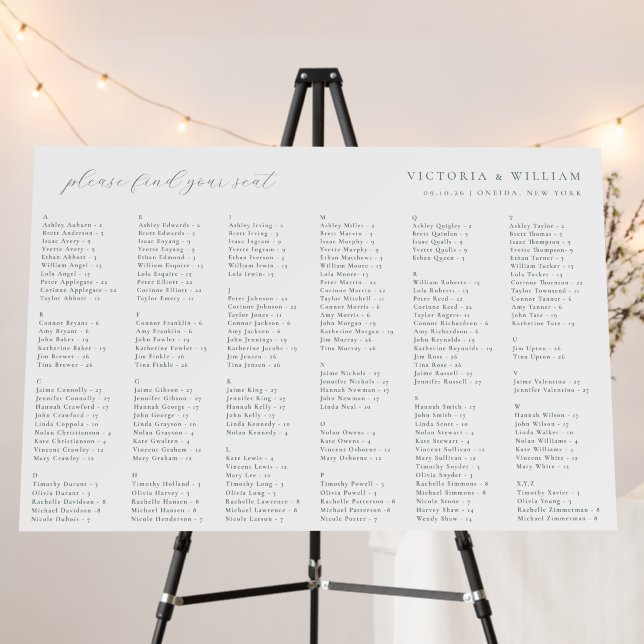 please find your seat
VICTORIA & WILLIAM
09.10.26 | ONEIDA, NEW YORK
A
Ashley Auburn - 2
Brett Anderson - 5
Isaac Avery - 9
Yvette Avery - 9
Ethan Abbott - 3
William Angel - 15
Lola Angel - 15
Peter Applegate - 22
Corinne Applegate - 22
Taylor Abbott - 11
B
Connor Bryant - 6
Amy Bryant - 6
John Baker - 19
Katherine Baker - 19
Jim Brewer - 26
Tina Brewer - 26
C
Jaime Connolly - 27
Jennifer Connolly - 27
Hannah Crawford - 17
John Crawford - 17
Linda Coppola - 10
Nolan Christianson - 4
Kate Christianson - 4
Vincent Crawley - 12
Mary Crawley - 12
D
Timothy Durant - 3
Olivia Durant - 3
Rachelle Davidson - 8
Michael Davidson - 8
Nicole Dubois - 7
E
Ashley Edwards - 2
Brett Edwards - 5
Isaac Eoyang - 9
Yvette Eoyang - 9
Ethan Edmond - 3
William Esquire - 15
Lola Esquire - 15
Peter Elliott - 22
Corinne Elliott - 22
Taylor Emery - 11
F
Connor Franklin - 6
Amy Franklin - 6
John Fowler - 19
Katherine Fowler - 19
Jim Finkle - 26
Tina Finkle - 26
G
Jaime Gibson - 27
Jennifer Gibson - 27
Hannah George - 17
John George - 17
Linda Grayson - 10
Nolan Grayson - 4
Kate Gwalten - 4
Vincent Graham - 12
Mary Graham - 12
H
Timothy Holland - 3
Olivia Harvey - 3
Rachelle Hansen - 8
Michael Hansen - 8
Nicole Henderson - 7
I
Ashley Irving - 2
Brett Irving - 5
Isaac Ingram - 9
Yvette Ingram - 9
Ethan Iverson - 3
William Irwin - 15
Lola Irwin - 15
J
Peter Johnson - 22
Corinne Johnson - 22
Taylor Jones - 11
Connor Jackson - 6
Amy Jackson - 6
John Jennings - 19
Katherine Jacobs - 19
Jim Jensen - 26
Tina Jensen - 26
K
Jaime King - 27
Jennifer King - 27
Hannah Kelly - 17
John Kelly - 17
Linda Kennedy - 10
Nolan Kennedy - 4
L
Kate Lewis - 4
Vincent Lewis - 12
Mary Lee - 12
Timothy Long - 3
Olivia Long - 3
Rachelle Lawrence - 8
Michael Lawrence - 8
Nicole Larson - 7
M
Ashley Miller - 2
Brett Marvin - 5
Isaac Murphy - 9
Yvette Murphy - 9
Ethan Matthews - 3
William Moore - 15
Lola Moore - 15
Peter Morrin - 22
Corinne Morrin - 22
Taylor Mitchell - 11
Connor Morris - 6
Amy Morris - 6
John Morgan - 19
Katherine Morgan - 19
Jim Murray - 26
Tina Murray - 26
N
Jaime Nichols - 27
Jennifer Nichols - 27
Hannah Newman - 17
John Newman - 17
Linda Neal - 10
O
Nolan Owens - 4
Kate Owens - 4
Vincent Osborne - 12
Mary Osborne - 12
P
Timothy Powell - 3
Olivia Powell - 3
Rachelle Patterson - 8
Michael Patterson - 8
Nicole Porter - 7
Q
Ashley Quigley - 2
Brett Quinlan - 5
Isaac Qualls - 9
Yvette Qualls - 9
Ethan Queen - 3
R
William Roberts - 15
Lola Roberts - 15
Peter Reed - 22
Corinne Reed - 22
Taylor Rogers - 11
Connor Richardson - 6
Amy Richardson - 6
John Reynolds - 19
Katherine Reynolds - 19
Jim Rose - 26
Tina Rose - 26
Jaime Russell - 27
Jennifer Russell - 27
S
Hannah Smith - 17
John Smith - 17
Linda Scott - 10
Nolan Stewart - 4
Kate Stewart - 4
Vincent Sullivan - 12
Mary Sullivan - 12
Timothy Snyder - 3
Olivia Snyder - 3
Rachelle Simmons - 8
Michael Simmons - 8
Nicole Stone - 7
Harvey Shaw - 14
Wendy Shaw - 14
T
Ashley Taylor - 2
Brett Thomas - 5
Isaac Thompson - 9
Yvette Thompson - 9
Ethan Turner - 3
William Tucker - 15
Lola Tucker - 15
Corinne Thornton - 22
Taylor Townsend - 11
Connor Tanner - 6
Amy Tanner - 6
John Tate - 19
Katherine Tate - 19
U
Jim Upton - 26
Tina Upton - 26
V
Jaime Valentino - 27
Jennifer Valentino - 27
W
Hannah Wilson - 17
John Wilson - 17
Linda Walker - 10
Nolan Williams - 4
Kate Williams - 4
Vincent White - 12
Mary White - 12
X,Y,Z
Timothy Xavier - 3
Olivia Young - 3
Rachelle Zimmerman - 8
Michael Zimmerman - 8